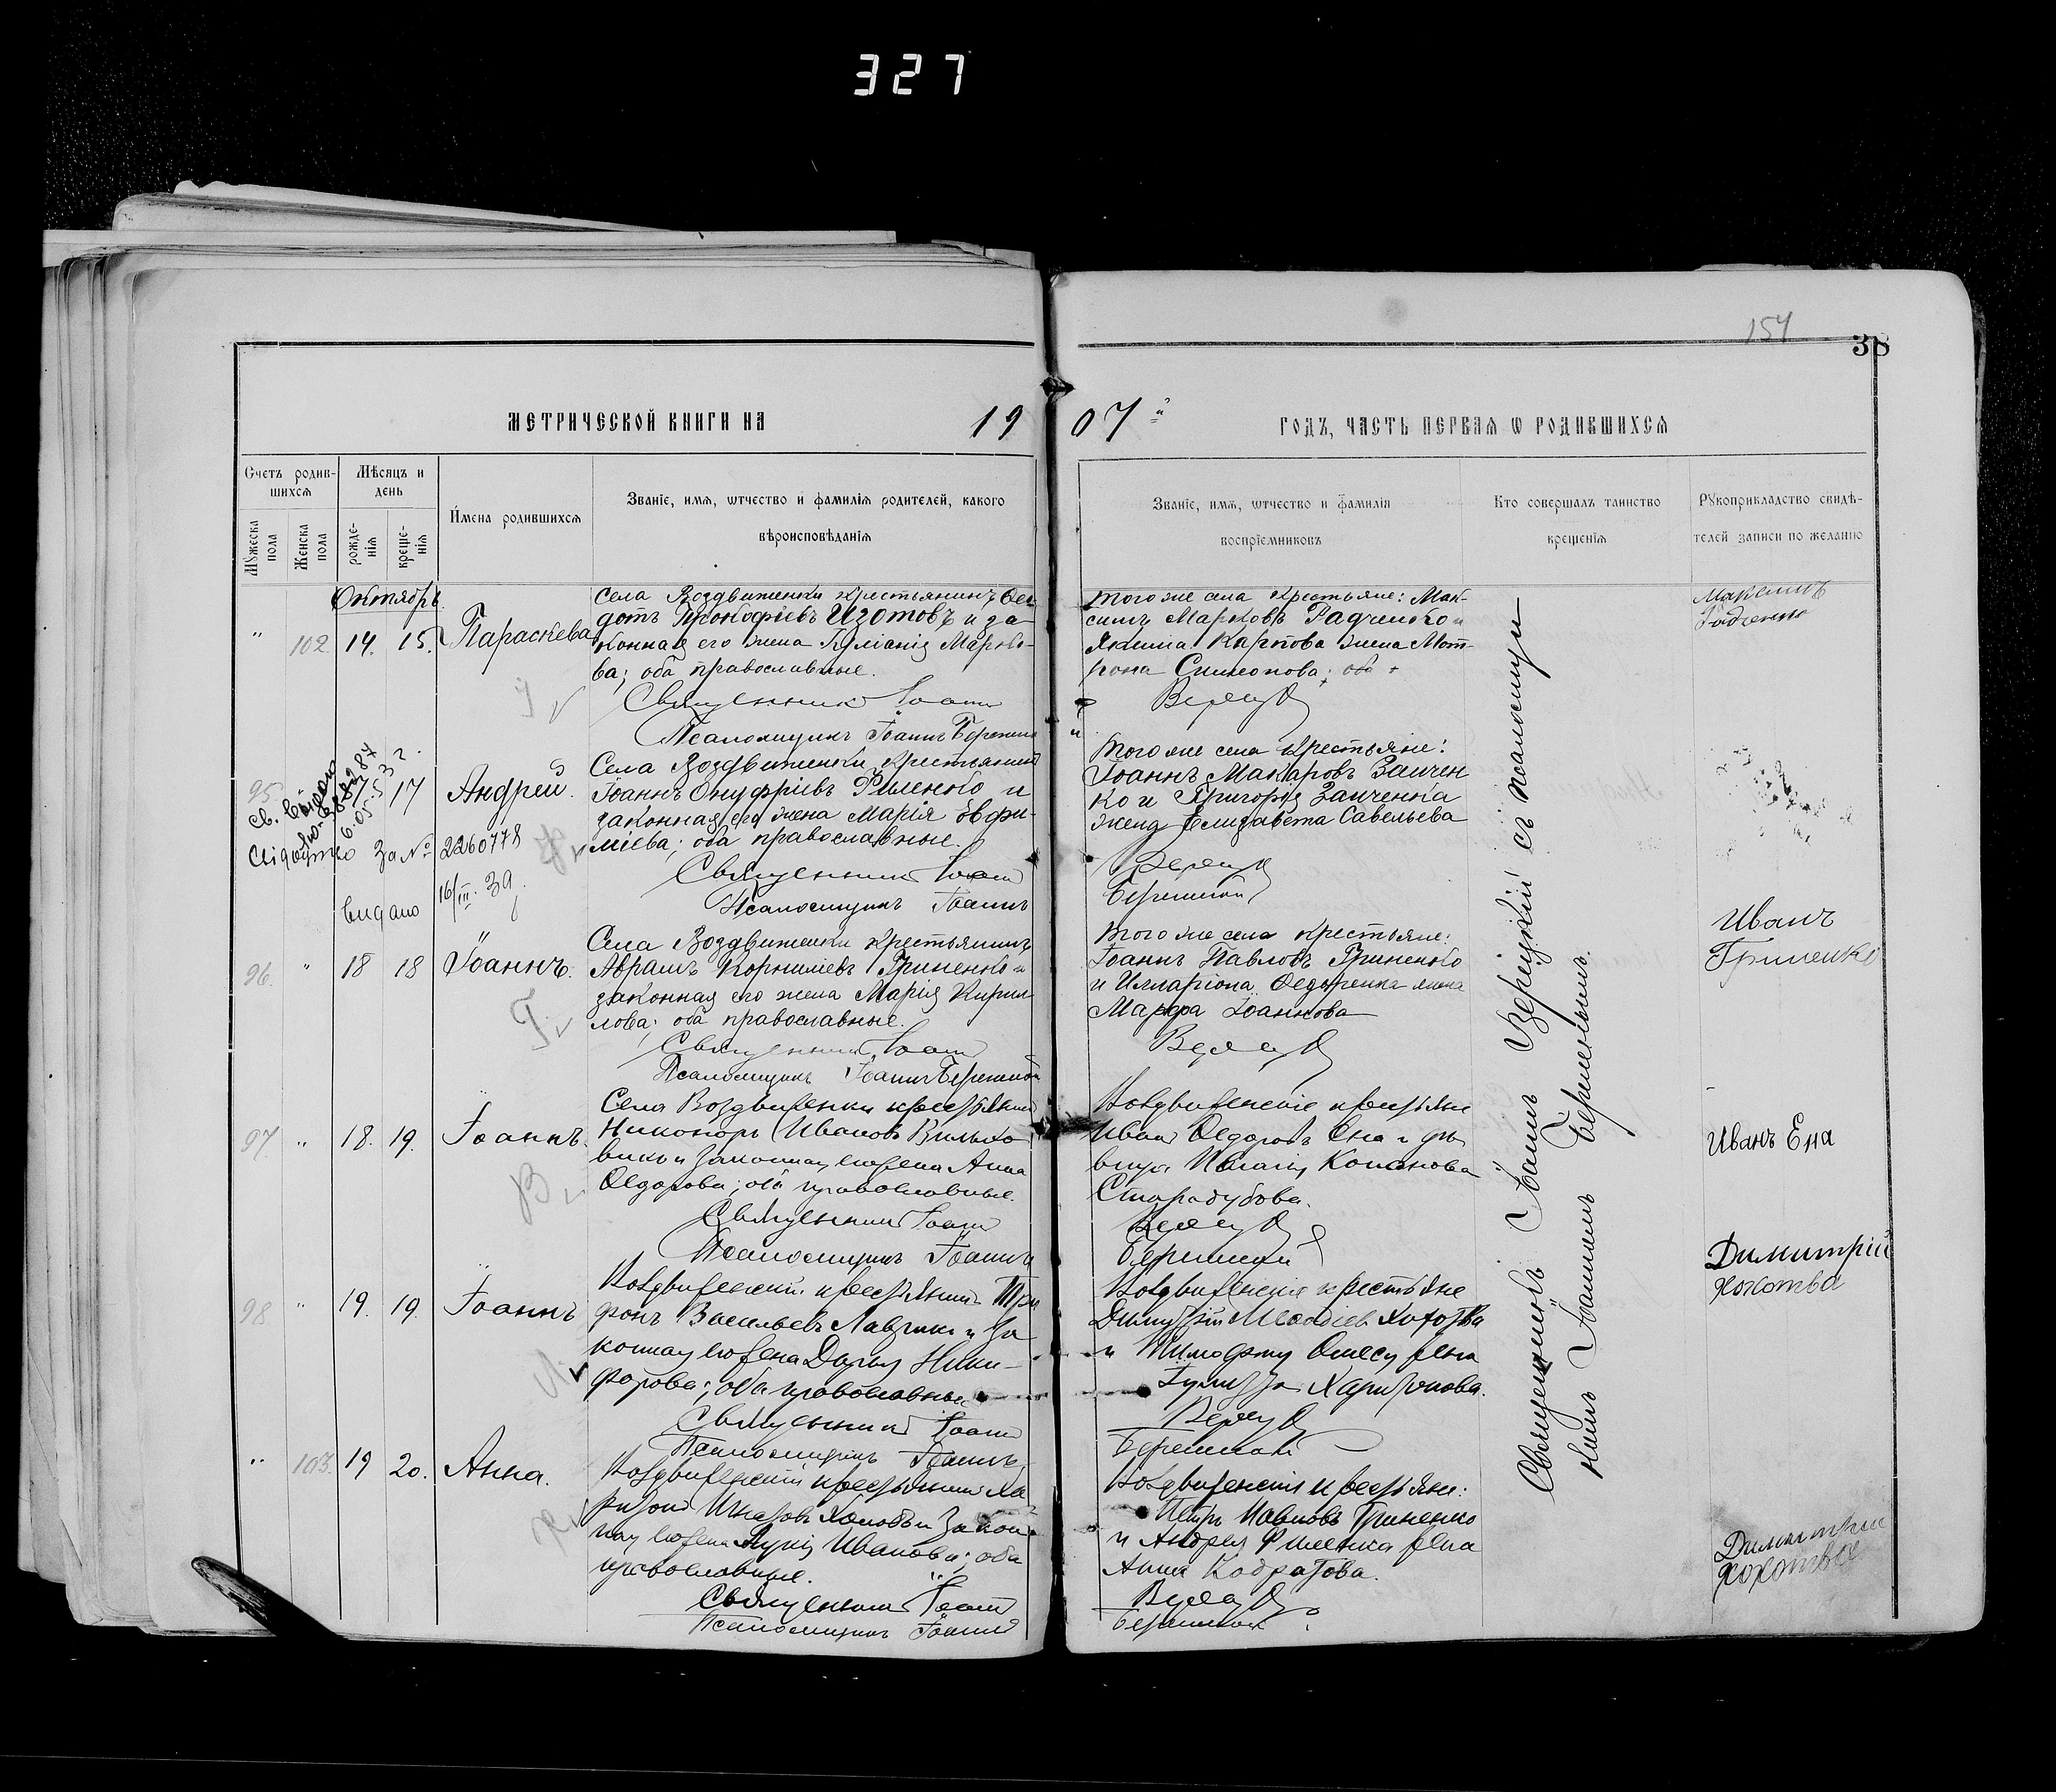 327
154
38
МЕТРИЧЕСКОЙ КНИГИ НА 19
07 й ГОДЪ, ЧАСТЬ ПЕРВАЯ Ѡ РОДИВШИХСЯ
Счетъ родив-
шихся
Мꙋжеска пола
Женска пола
Мѣсяцъ и
день
рожде-
нія
креще-
нія
Имена родившихся
Званіе, имя, ѿчество и фамилія родителей, какого
вѣроисповѣданія
Званіе, имя, ѿчество и фамилія
воспріемниковъ
Кто совершалъ таинство
крещенія
Рꙋкоприкладство свидѣ-
телей записи по желанію
Октябрь
" 102. 14. 15. Параскева
Села Воздвиженки крестьянинъ Ѳео
дотъ Прокофіевъ Изотовъ и за-
конная его жена Іуліанія Марко-
ва; оба православные.
Священник Іоанн
Псаломщикъ Іоаннъ Бережной
того же села крестьяне: Мак-
симъ Марковъ Радченко и
Якима Карпова жена Мот-
рона Симеонова; оба
Верец
Максимъ
Радченко
95 17 17 Андрей.
Села Воздвиженки крестьянинъ
Іоаннъ Онуфріевъ Филенко и
законная его жена Марія Евфи-
міева; оба православные.
Священник Іоанн
Псаломщикъ Іоаннъ
за № 2260778
видано 16/III. 39
того же села крестьяне:
Іоаннъ Макаровъ Заичен
ко и Григорія Заиченка
жена Елизавета Савельева
Верец
Бережной
96. " 18 18 Іоаннъ.
Села Воздвиженки крестьянинъ
Аврамъ Корниліевъ Гриненко и
законная его жена Марія Кирил
лова; оба православные.
Священник Іоанн
Псаломщикъ Іоаннъ Бережной
того же села крестьяне:
Іоаннъ Павловъ Гриненко
и Илларіона Ѳедоренка жена
Марѳа Іоаннова
Верец
Иванъ
Гриненко
97. " 18. 19. Іоаннъ.
Села Воздвиженки крестьянин
Никоноръ Ивановъ
и законная его жена Анна
Ѳедорова; оба православные.
Священник Іоанн
Псаломщикъ Іоаннъ
Воздвиженскіе крестьяне
Иван Ѳедоровъ Ена и дѣ
вица
Стародубова.
Верец
Бережной
Иванъ Ена
98 " 19. 19. Іоаннъ
Воздвиженскій крестьянинъ Три
фонъ Васильевъ Лавринъ и за
конная его жена Дарья Ники-
форова; оба православные
Священник Іоанн
Псаломщикъ Іоаннъ
Воздвиженскіе крестьяне
Димитрій Меѳодіев Хохотва
и жена
Харитонова.
Верец
Бережной
Димитрій
Хохотва
" 103. 19 20. Анна.
Воздвиженскій крестьянин Ха
ритон Игнатовъ и закон
ная его жена Иванова; оба
православные.
Священник Іоанн
Псаломщикъ Іоаннъ
Воздвиженскіе крестьяне:
Петръ Павловъ Гриненко
и Андрея Филенка жена
Анна
Верец
Бережной
Димитрій
Хохотва
Священникъ Іоаннъ Верецкій съ псаломщи
комъ Іоанномъ Бережнымъ.